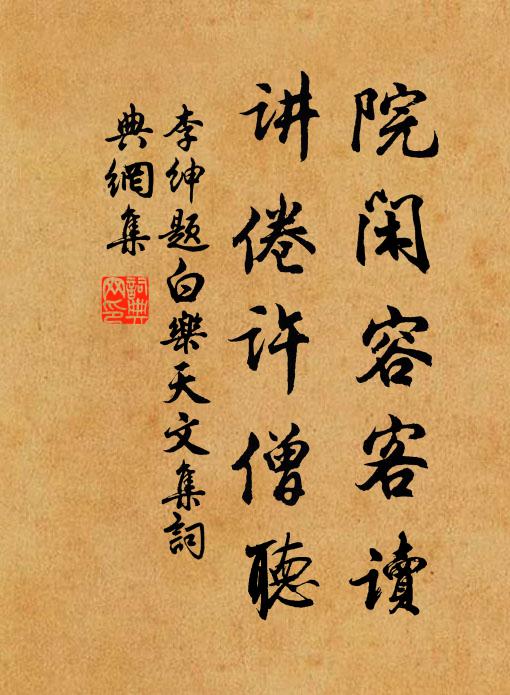 院闲容客读
讲倦许僧聽
李绅题白樂天文集詞
典網集
詞典網印